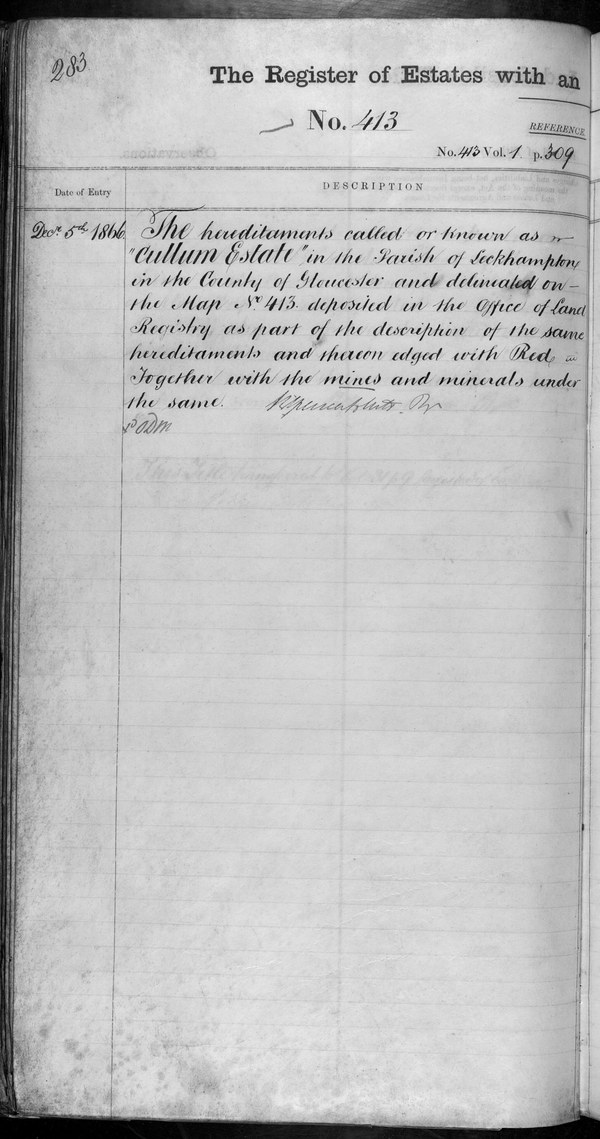 283
The Register of Estates with an
No. 413
REFERENCE
No. 413 Vol. 1 p. 309
Observations.
Date of Entry
DESCRIPTION
Decr. 5th 1866.
The hereditaments called or known as
"Cullum Estate" in the Parish of Leckhampton
in the County of Gloucester and delineated on
the Map No. 413. deposited in the Office of Land
Registry as part of the description of the same
hereditaments and thereon edged with Red
Together with the mines and minerals under
the same.